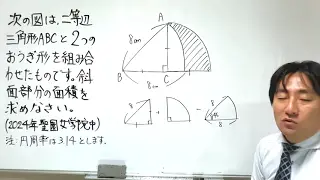 次の図は、二等辺
三角形ABCと2つの
おうぎ形を組み合
わせたものです。斜
面部分の面積を
求めなさい。
(2024年聖園女学院中)
注:円周率は3.14とします。
A
8cm
B
C
8cm
8
+
-
8
8